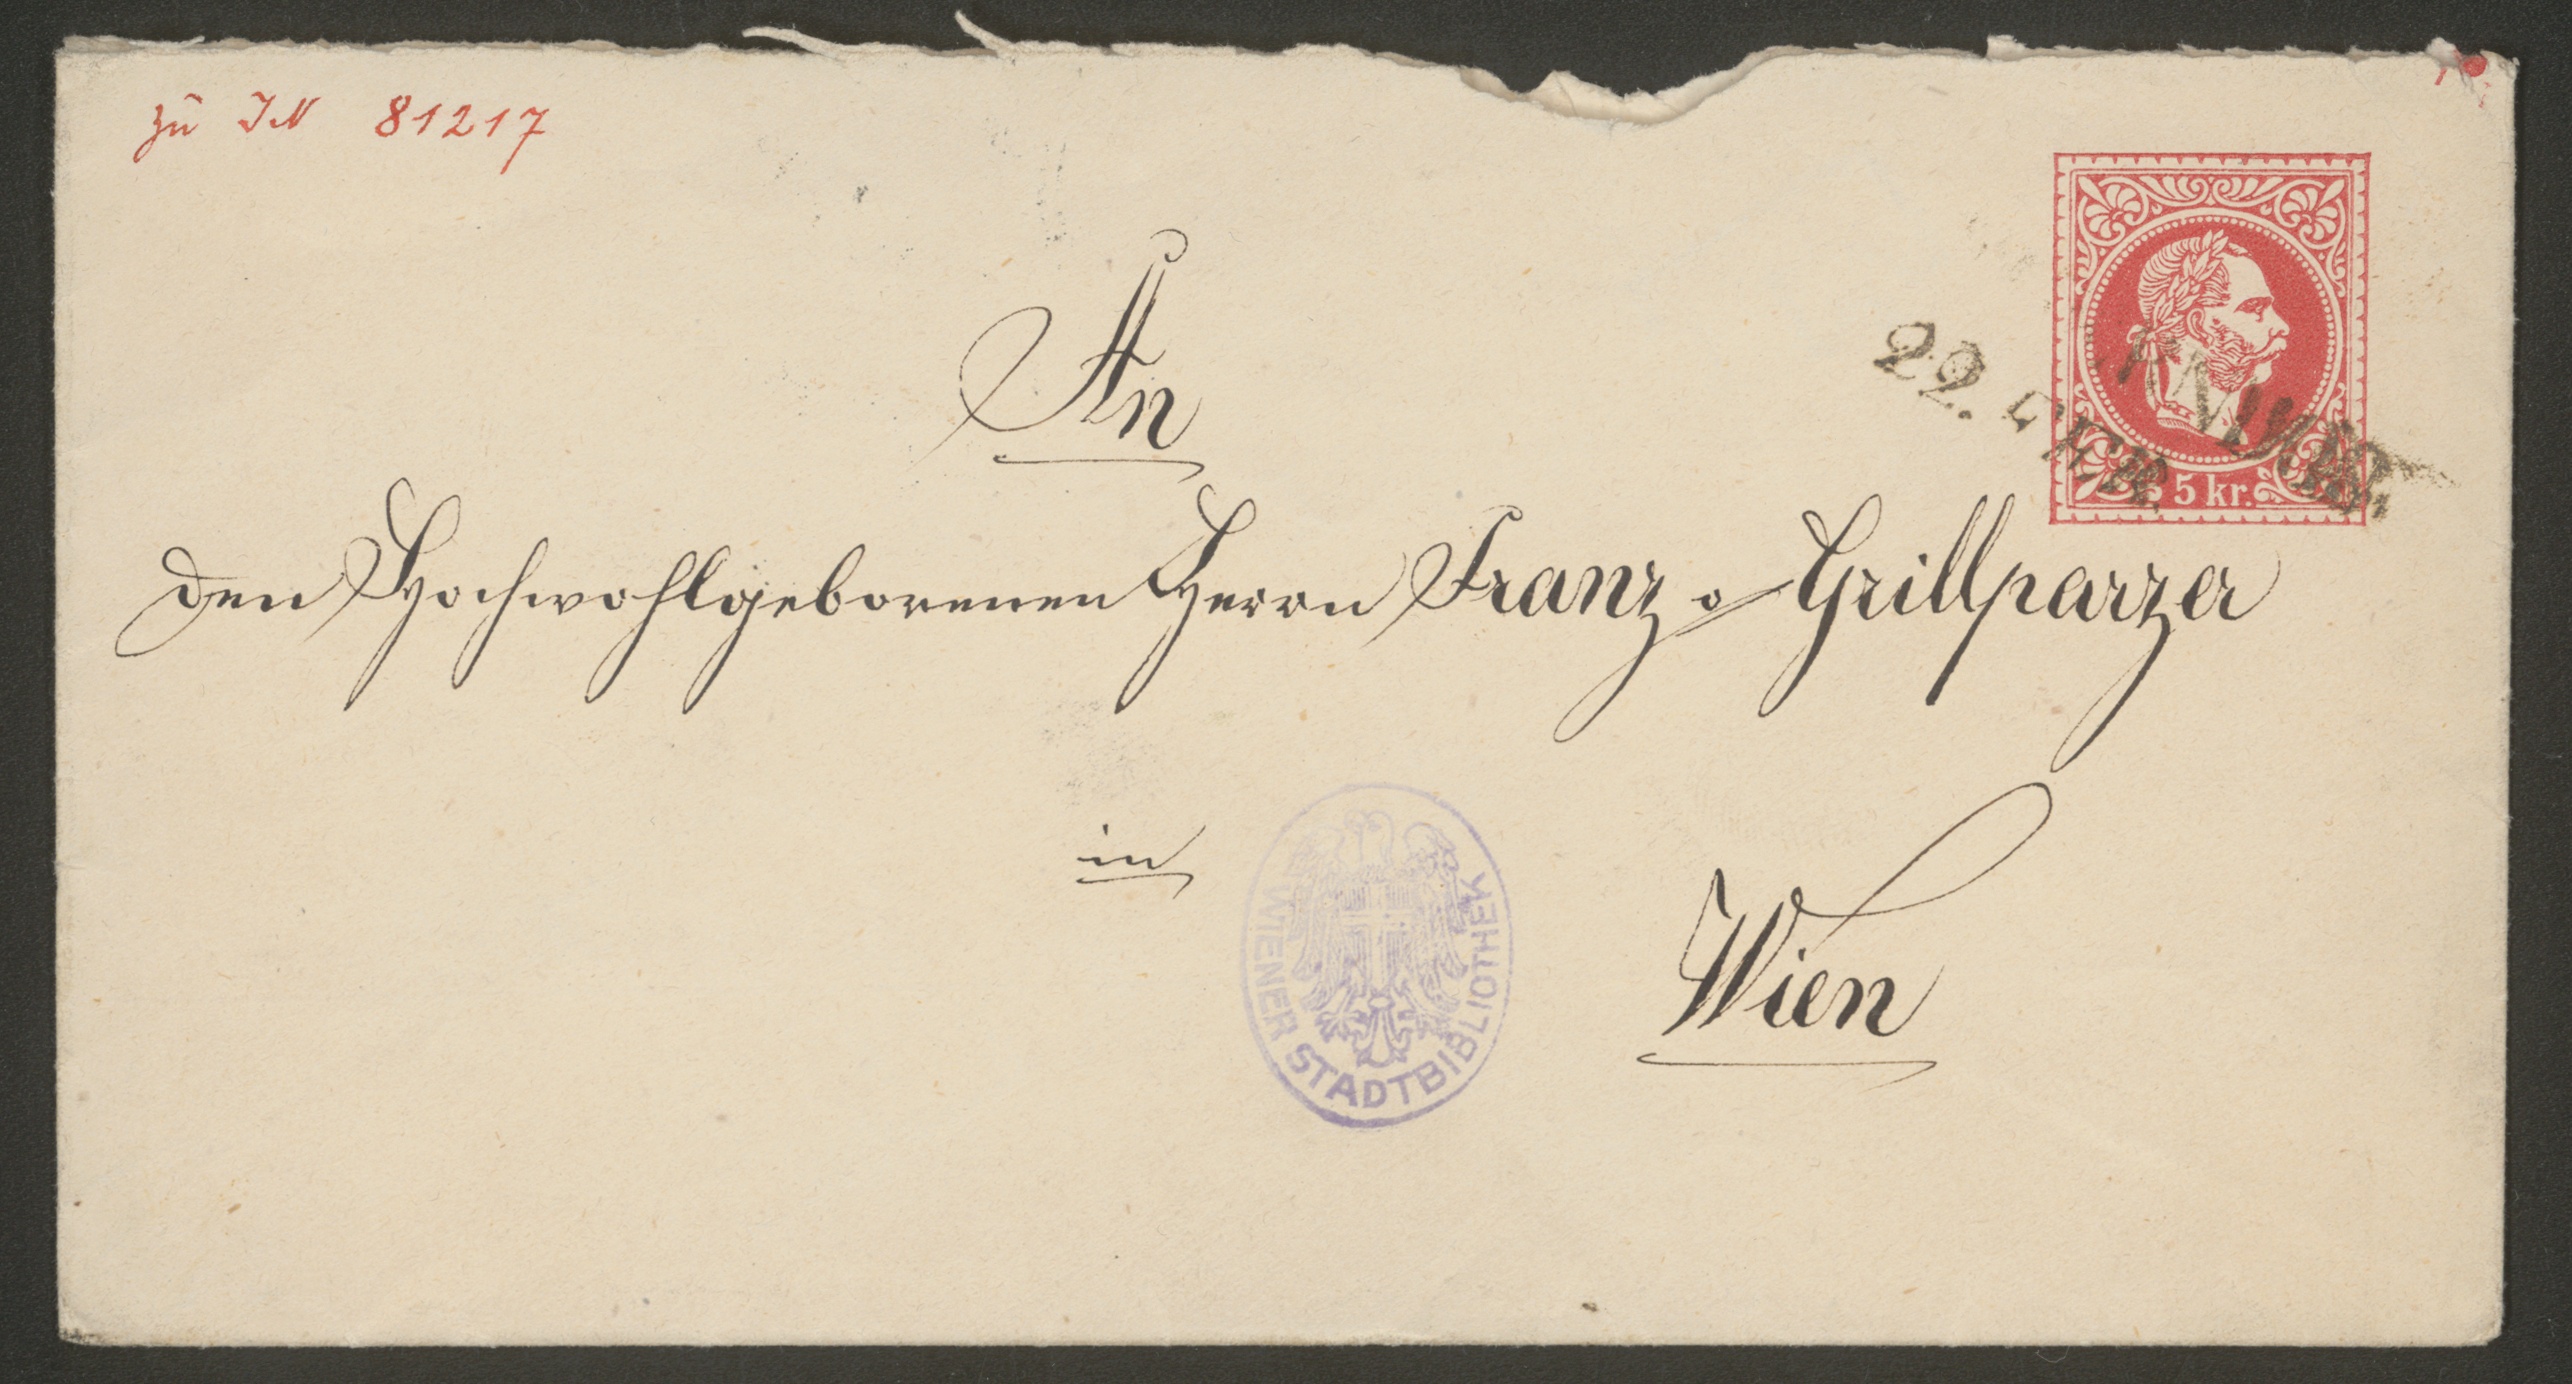 zu IN 81217
An
den Hochwohlgeborenen Herrn Franz v Grillparzer
5 kr.
22.
in
Wien
WIENER STADTBIBLIOTHEK